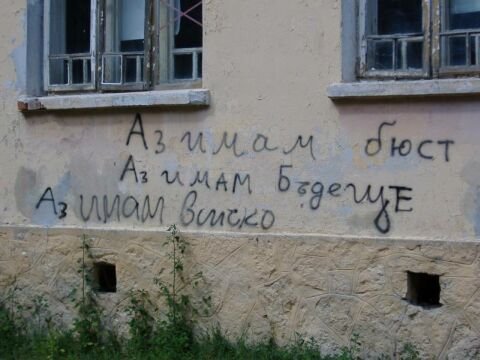 Аз имам бюст
Аз имам Бъдеще
Аз имам всичко